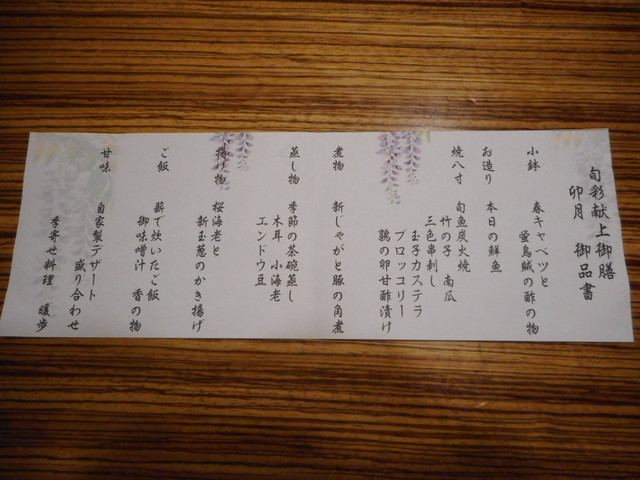 旬彩献上御膳
卯月 御品書
小鉢 春キャベツと
蛍烏賊の酢の物
お造り 本日の鮮魚
焼八寸 旬魚炭火焼
竹の子 南瓜
三色串刺し
玉子カステラ
ブロッコリー
鶉の卵甘酢漬け
煮物 新じゃがと豚の角煮
蒸し物 季節の茶碗蒸し
木耳 小海老
エンドウ豆
揚げ物 桜海老と
新玉葱のかき揚げ
ご飯 薪で炊いたご飯
御味噌汁 香の物
甘味 自家製デザート
盛り合わせ
季寄せ料理 暖歩